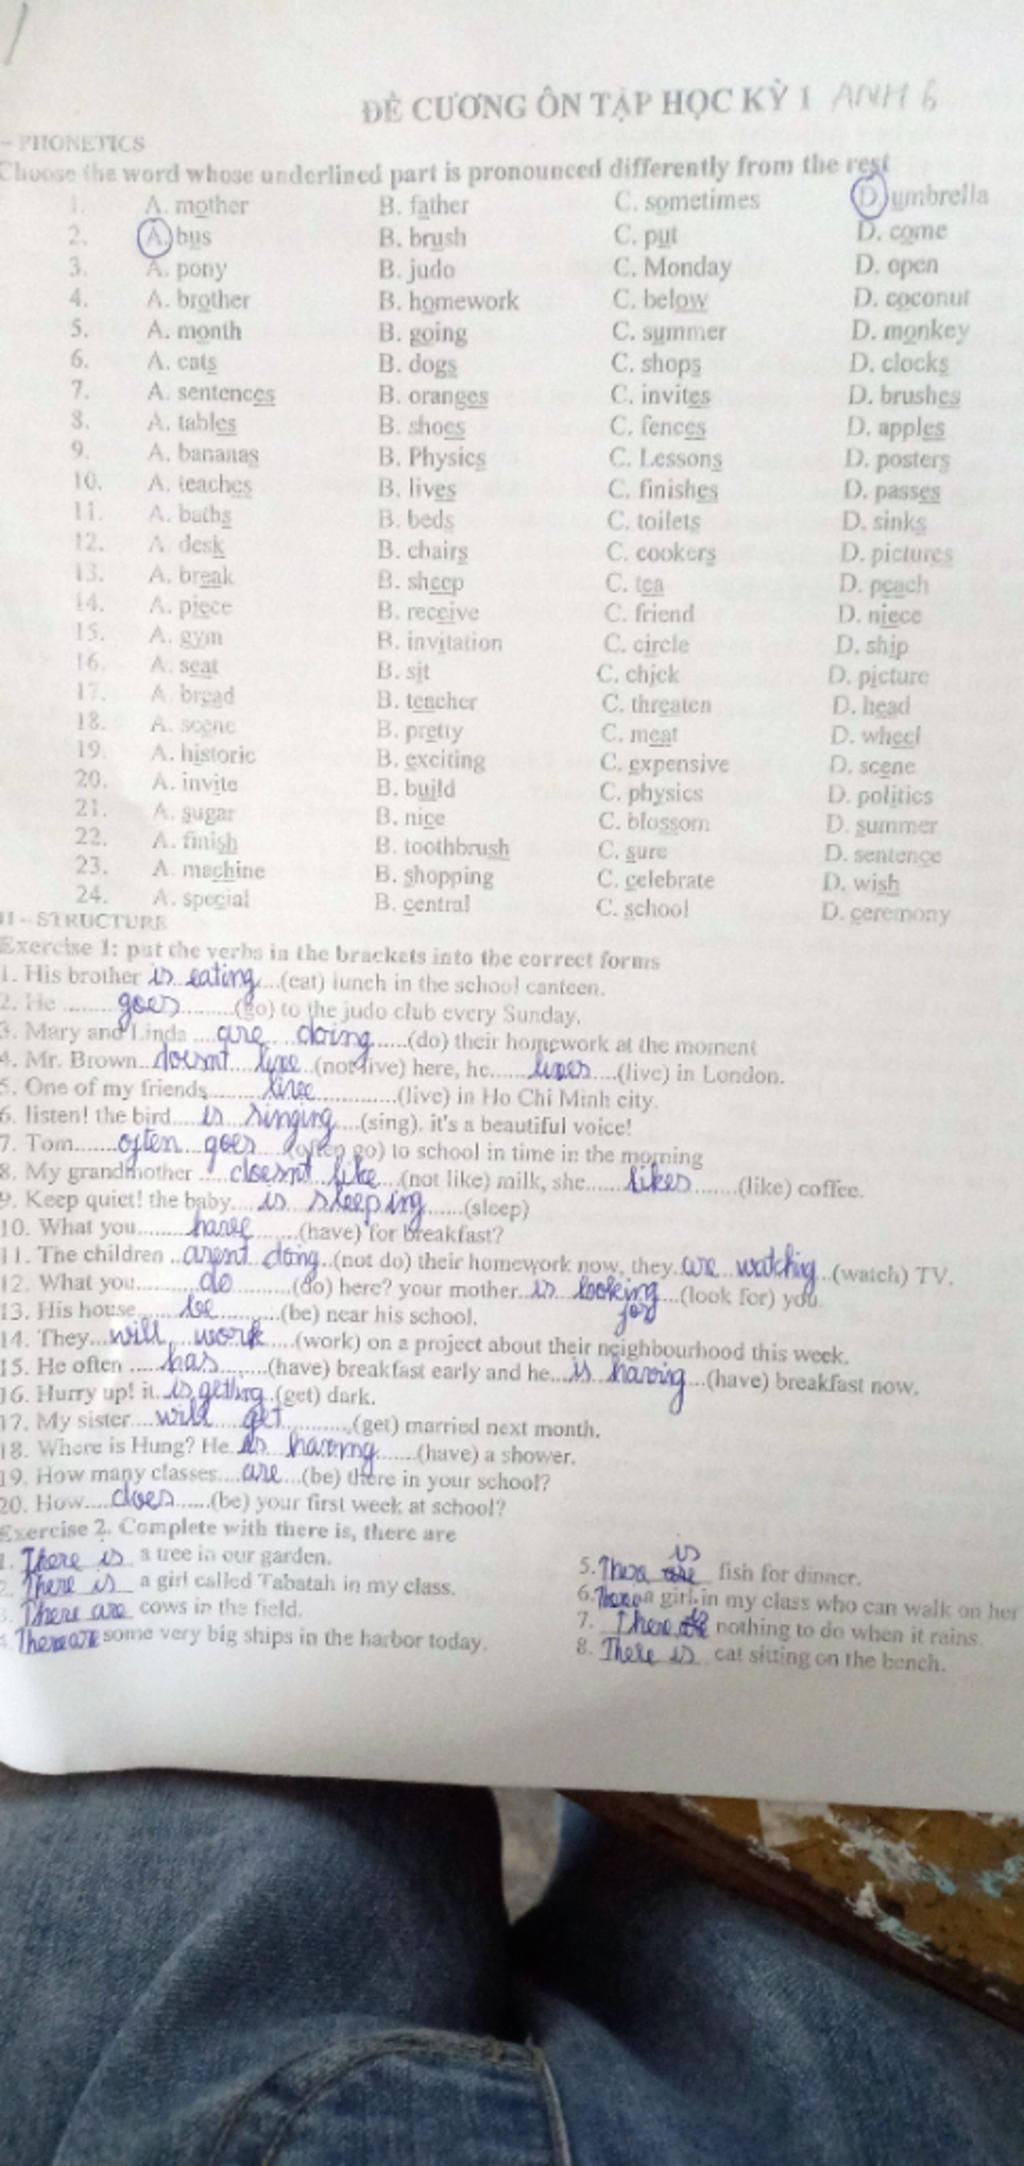 ĐỀ CƯƠNG ÔN TẬP HỌC KỲ 1 ANH 6
- PHONETICS
Choose the word whose underlined part is pronounced differently from the rest
1. A. mother B. father C. sometimes D. umbrella
2. A. bus B. brush C. put D. come
3. A. pony B. judo C. Monday D. open
4. A. brother B. homework C. below D. coconut
5. A. month B. going C. summer D. monkey
6. A. cats B. dogs C. shops D. clocks
7. A. sentences B. oranges C. invites D. brushes
8. A. tables B. shoes C. fences D. apples
9. A. bananas B. Physics C. Lessons D. posters
10. A. teaches B. lives C. finishes D. passes
11. A. baths B. beds C. toilets D. sinks
12. A. desk B. chairs C. cookers D. pictures
13. A. break B. sheep C. tea D. peach
14. A. piece B. receive C. friend D. niece
15. A. gym B. invitation C. circle D. ship
16. A. seat B. sit C. chick D. picture
17. A. bread B. teacher C. threaten D. head
18. A. scene B. pretty C. meat D. wheel
19. A. historic B. exciting C. expensive D. scene
20. A. invite B. build C. physics D. politics
21. A. sugar B. nice C. blossom D. summer
22. A. finish B. toothbrush C. sure D. sentence
23. A. machine B. shopping C. celebrate D. wish
24. A. special B. central C. school D. ceremony
II - STRUCTURE
Exercise 1: put the verbs in the brackets into the correct forms
1. His brother is eating (eat) lunch in the school canteen.
2. He goes (go) to the judo club every Sunday.
3. Mary and Linda are doing (do) their homework at the moment
4. Mr. Brown doesnt live (not live) here, he lives (live) in London.
5. One of my friends live (live) in Ho Chi Minh city.
6. listen! the bird is singing (sing). it's a beautiful voice!
7. Tom often goes (often go) to school in time in the morning
8. My grandmother doesnt like (not like) milk, she likes (like) coffee.
9. Keep quiet! the baby is sleeping (sleep)
10. What you have (have) for breakfast?
11. The children arent doing (not do) their homework now, they are watching (watch) TV.
12. What you do (do) here? your mother is looking for (look for) you.
13. His house be (be) near his school.
14. They will work (work) on a project about their neighbourhood this week.
15. He often has (have) breakfast early and he is having (have) breakfast now.
16. Hurry up! it is getting (get) dark.
17. My sister will get (get) married next month.
18. Where is Hung? He is having (have) a shower.
19. How many classes are (be) there in your school?
20. How does (be) your first week at school?
Exercise 2. Complete with there is, there are
1. There is a tree in our garden.
2. There is a girl called Tabatah in my class.
3. There are cows in the field.
4. There are some very big ships in the harbor today.
5. is fish for dinner.
6. a girl in my class who can walk on her
7. There nothing to do when it rains.
8. There is cat sitting on the bench.